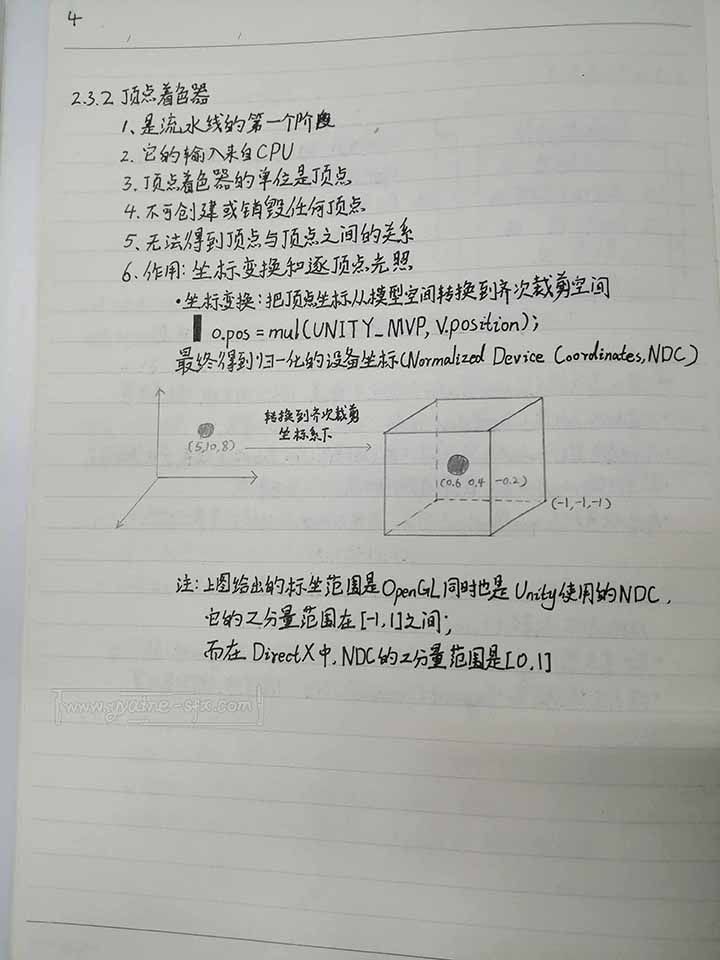 4
2.3.2 顶点着色器
1、是流水线的第一个阶段
2. 它的输入来自CPU
3. 顶点着色器的单位是顶点
4. 不可创建或销毁任何顶点
5、无法得到顶点与顶点之间的关系
6. 作用:坐标变换和逐顶点光照
·坐标变换:把顶点坐标从模型空间转换到齐次裁剪空间
o.pos = mul(UNITY_MVP, V.position);
最终得到归一化的设备坐标(Normalized Device Coordinates,NDC)
转换到齐次裁剪
坐标系下
(5,10,8)
(0.6 0.4 -0.2)
(-1,-1,-1)
注:上图给出的标坐范围是OpenGL同时也是Unity使用的NDC,
它的Z分量范围在[-1,1]之间;
而在DirectX中,NDC的Z分量范围是[0,1]